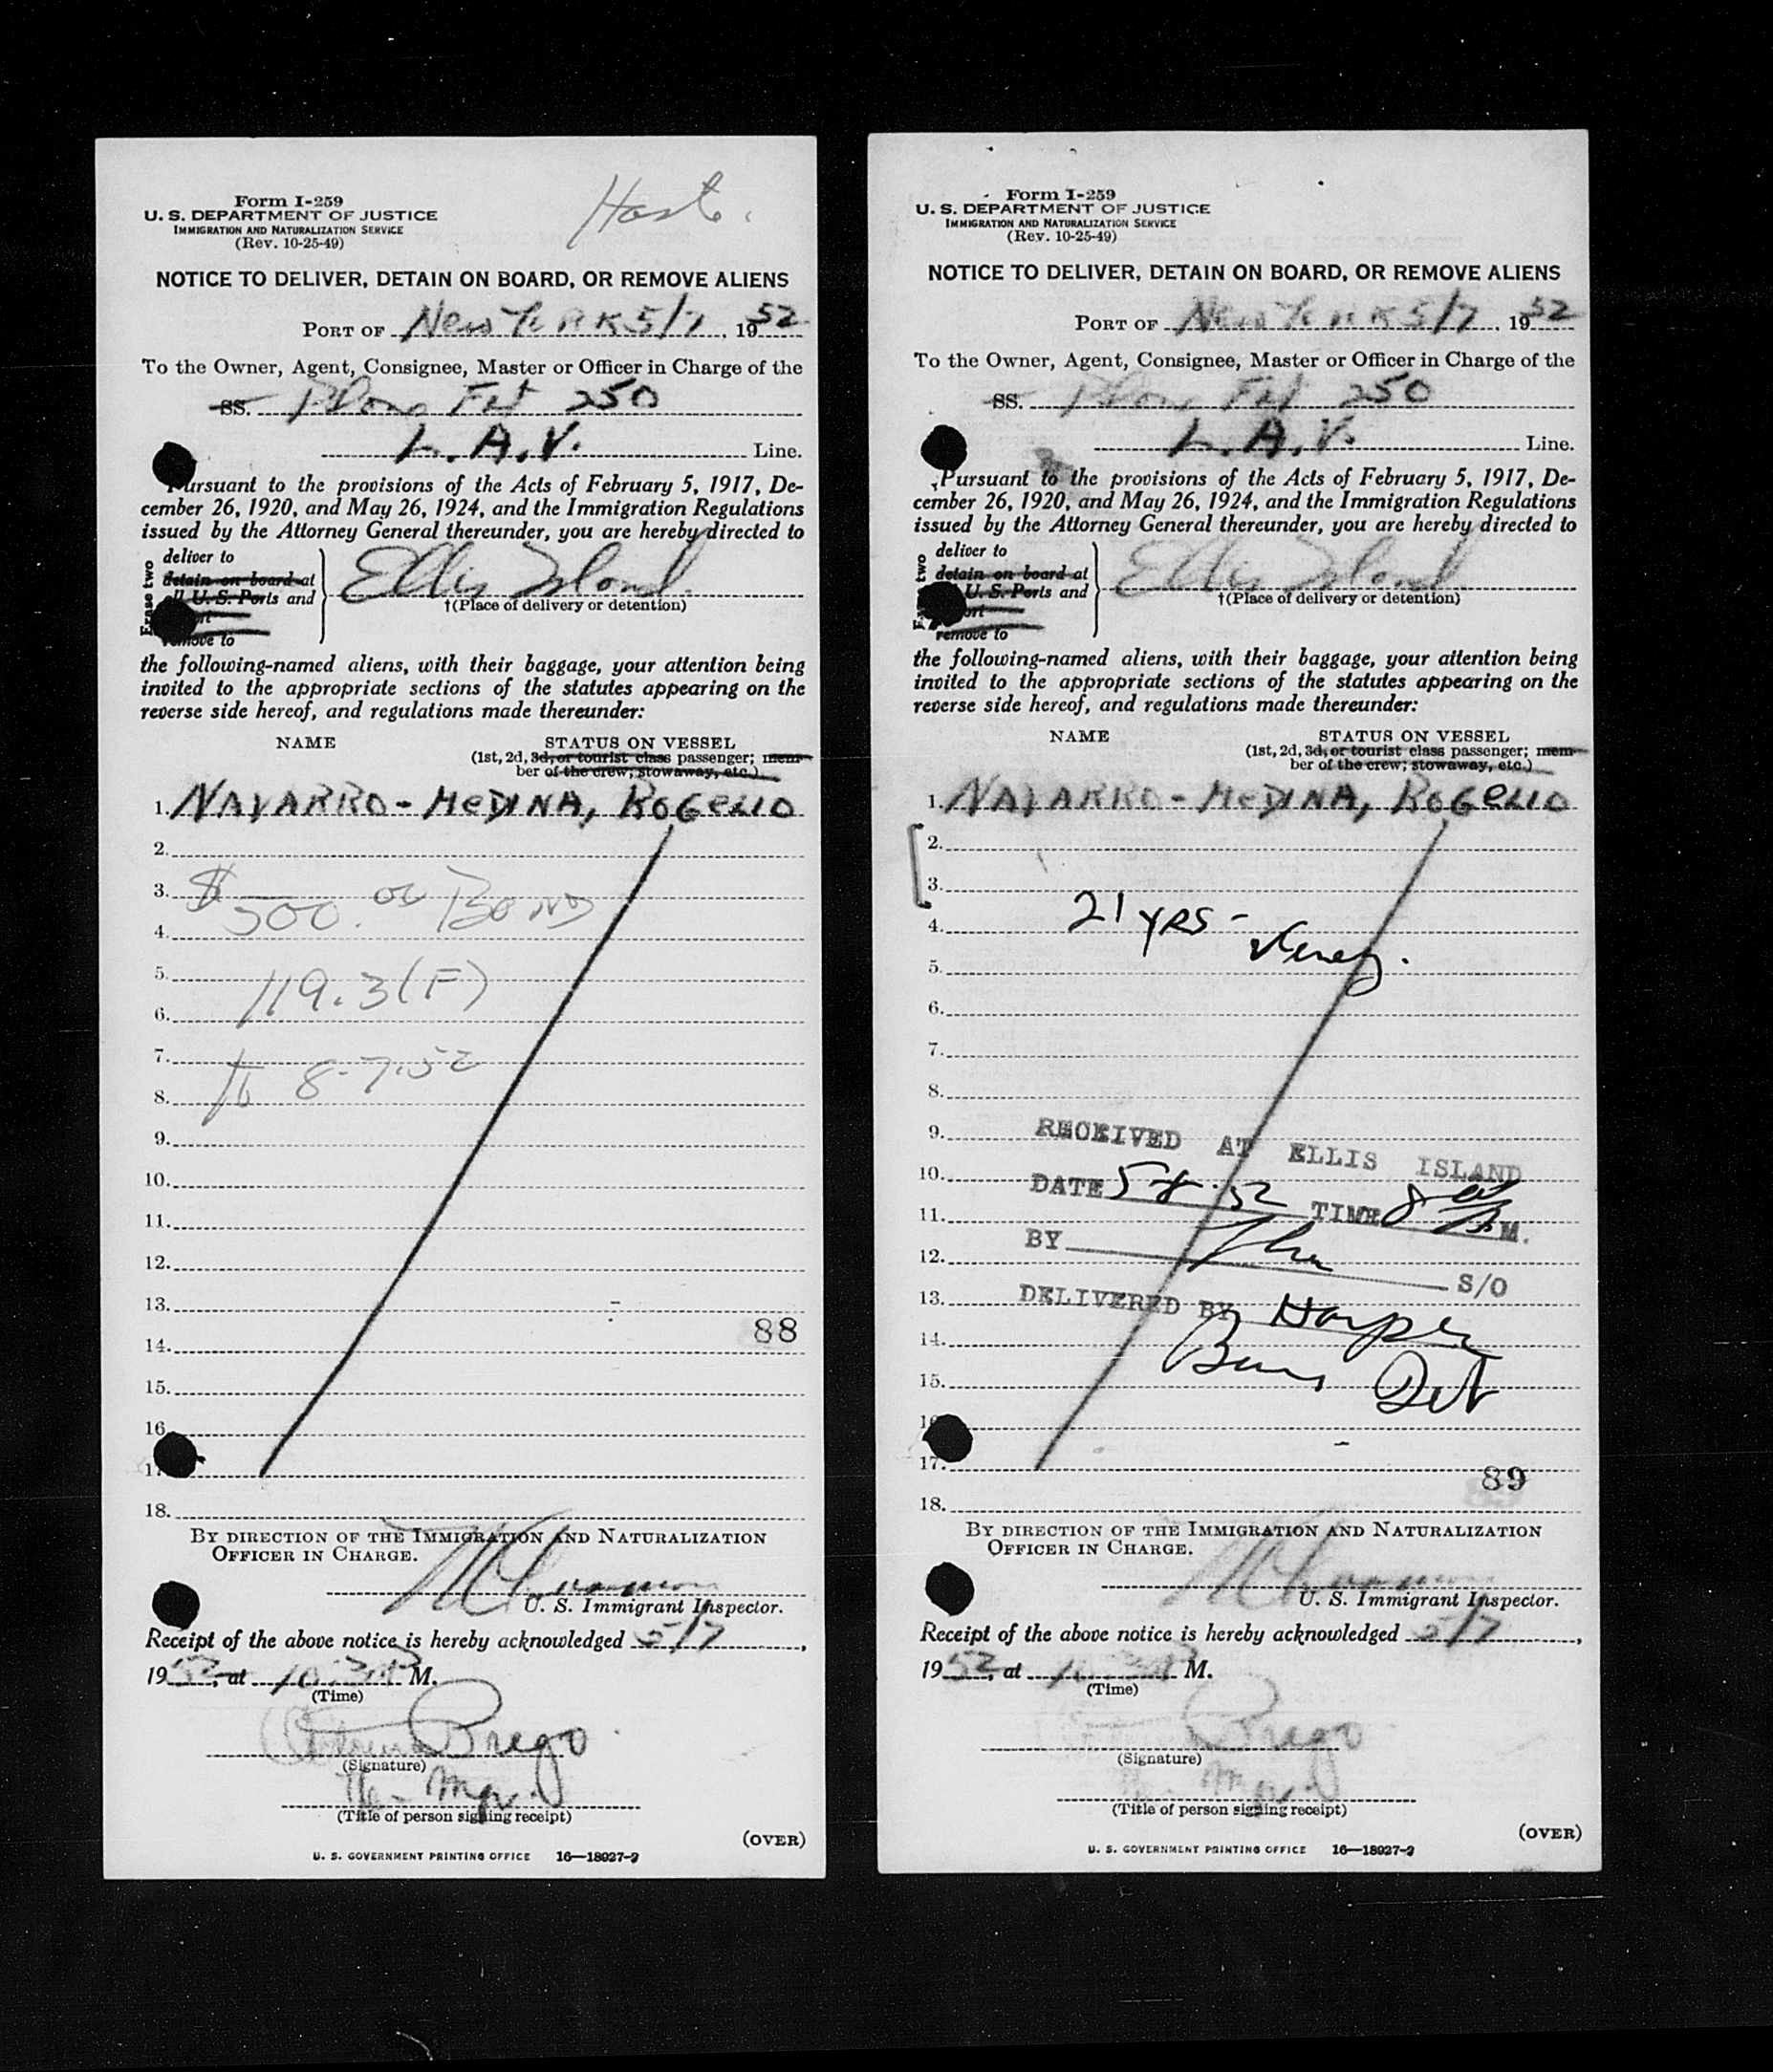 Form I-259
U. S. DEPARTMENT OF JUSTICE
IMMIGRATION AND NATURALIZATION SERVICE
(Rev. 10-25-49)
NOTICE TO DELIVER, DETAIN ON BOARD, OR REMOVE ALIENS
PORT OF New York 5/7, 1952
To the Owner, Agent, Consignee, Master or Officer in Charge of the
SS. Plane Flt 250
L.A.V. Line.
Pursuant to the provisions of the Acts of February 5, 1917, De-
cember 26, 1920, and May 26, 1924, and the Immigration Regulations
issued by the Attorney General thereunder, you are hereby directed to
Erase two
deliver to
detain on board at
all U. S. Ports and
remove to
Ellis Island
†(Place of delivery or detention)
the following-named aliens, with their baggage, your attention being
invited to the appropriate sections of the statutes appearing on the
reverse side hereof, and regulations made thereunder:
NAME STATUS ON VESSEL
(1st, 2d, 3d, or tourist class passenger; mem-
ber of the crew; stowaway, etc.)
1. NAVARRO-MEDINA, ROGELIO
2.
3. $500.00 Bond
4.
5. 119.3(F)
6.
7. to 8-7-52
8.
9.
10.
11.
12.
13.
88
14.
15.
16.
17.
18.
BY DIRECTION OF THE IMMIGRATION AND NATURALIZATION
OFFICER IN CHARGE.
U. S. Immigrant Inspector.
Receipt of the above notice is hereby acknowledged 5/7,
1952, at 10:30 P M.
(Time)
Brego
(Signature)
Mgr.
(Title of person signing receipt)
(OVER)
U. S. GOVERNMENT PRINTING OFFICE 16—18027-2
Form I-259
U. S. DEPARTMENT OF JUSTICE
IMMIGRATION AND NATURALIZATION SERVICE
(Rev. 10-25-49)
NOTICE TO DELIVER, DETAIN ON BOARD, OR REMOVE ALIENS
PORT OF New York 5/7, 1952
To the Owner, Agent, Consignee, Master or Officer in Charge of the
SS. Plane Flt 250
L.A.V. Line.
Pursuant to the provisions of the Acts of February 5, 1917, De-
cember 26, 1920, and May 26, 1924, and the Immigration Regulations
issued by the Attorney General thereunder, you are hereby directed to
two
deliver to
detain on board at
U. S. Ports and
remove to
Ellis Island
†(Place of delivery or detention)
the following-named aliens, with their baggage, your attention being
invited to the appropriate sections of the statutes appearing on the
reverse side hereof, and regulations made thereunder:
NAME STATUS ON VESSEL
(1st, 2d, 3d, or tourist class passenger; mem-
ber of the crew; stowaway, etc.)
1. NAVARRO-MEDINA, ROGELIO
2.
3.
4. 21 YRS - Venez.
5.
6.
7.
8.
9. RECEIVED AT ELLIS ISLAND
10. DATE 5-8-52 TIME 8 M.
11.
12. BY S/O
13. DELIVERED BY Harper
14.
15. Det
16
17.
89
18.
BY DIRECTION OF THE IMMIGRATION AND NATURALIZATION
OFFICER IN CHARGE.
U. S. Immigrant Inspector.
Receipt of the above notice is hereby acknowledged 5/7,
1952, at 10:30 P M.
(Time)
Brego
(Signature)
Mgr.
(Title of person signing receipt)
(OVER)
U. S. GOVERNMENT PRINTING OFFICE 16—18027-2